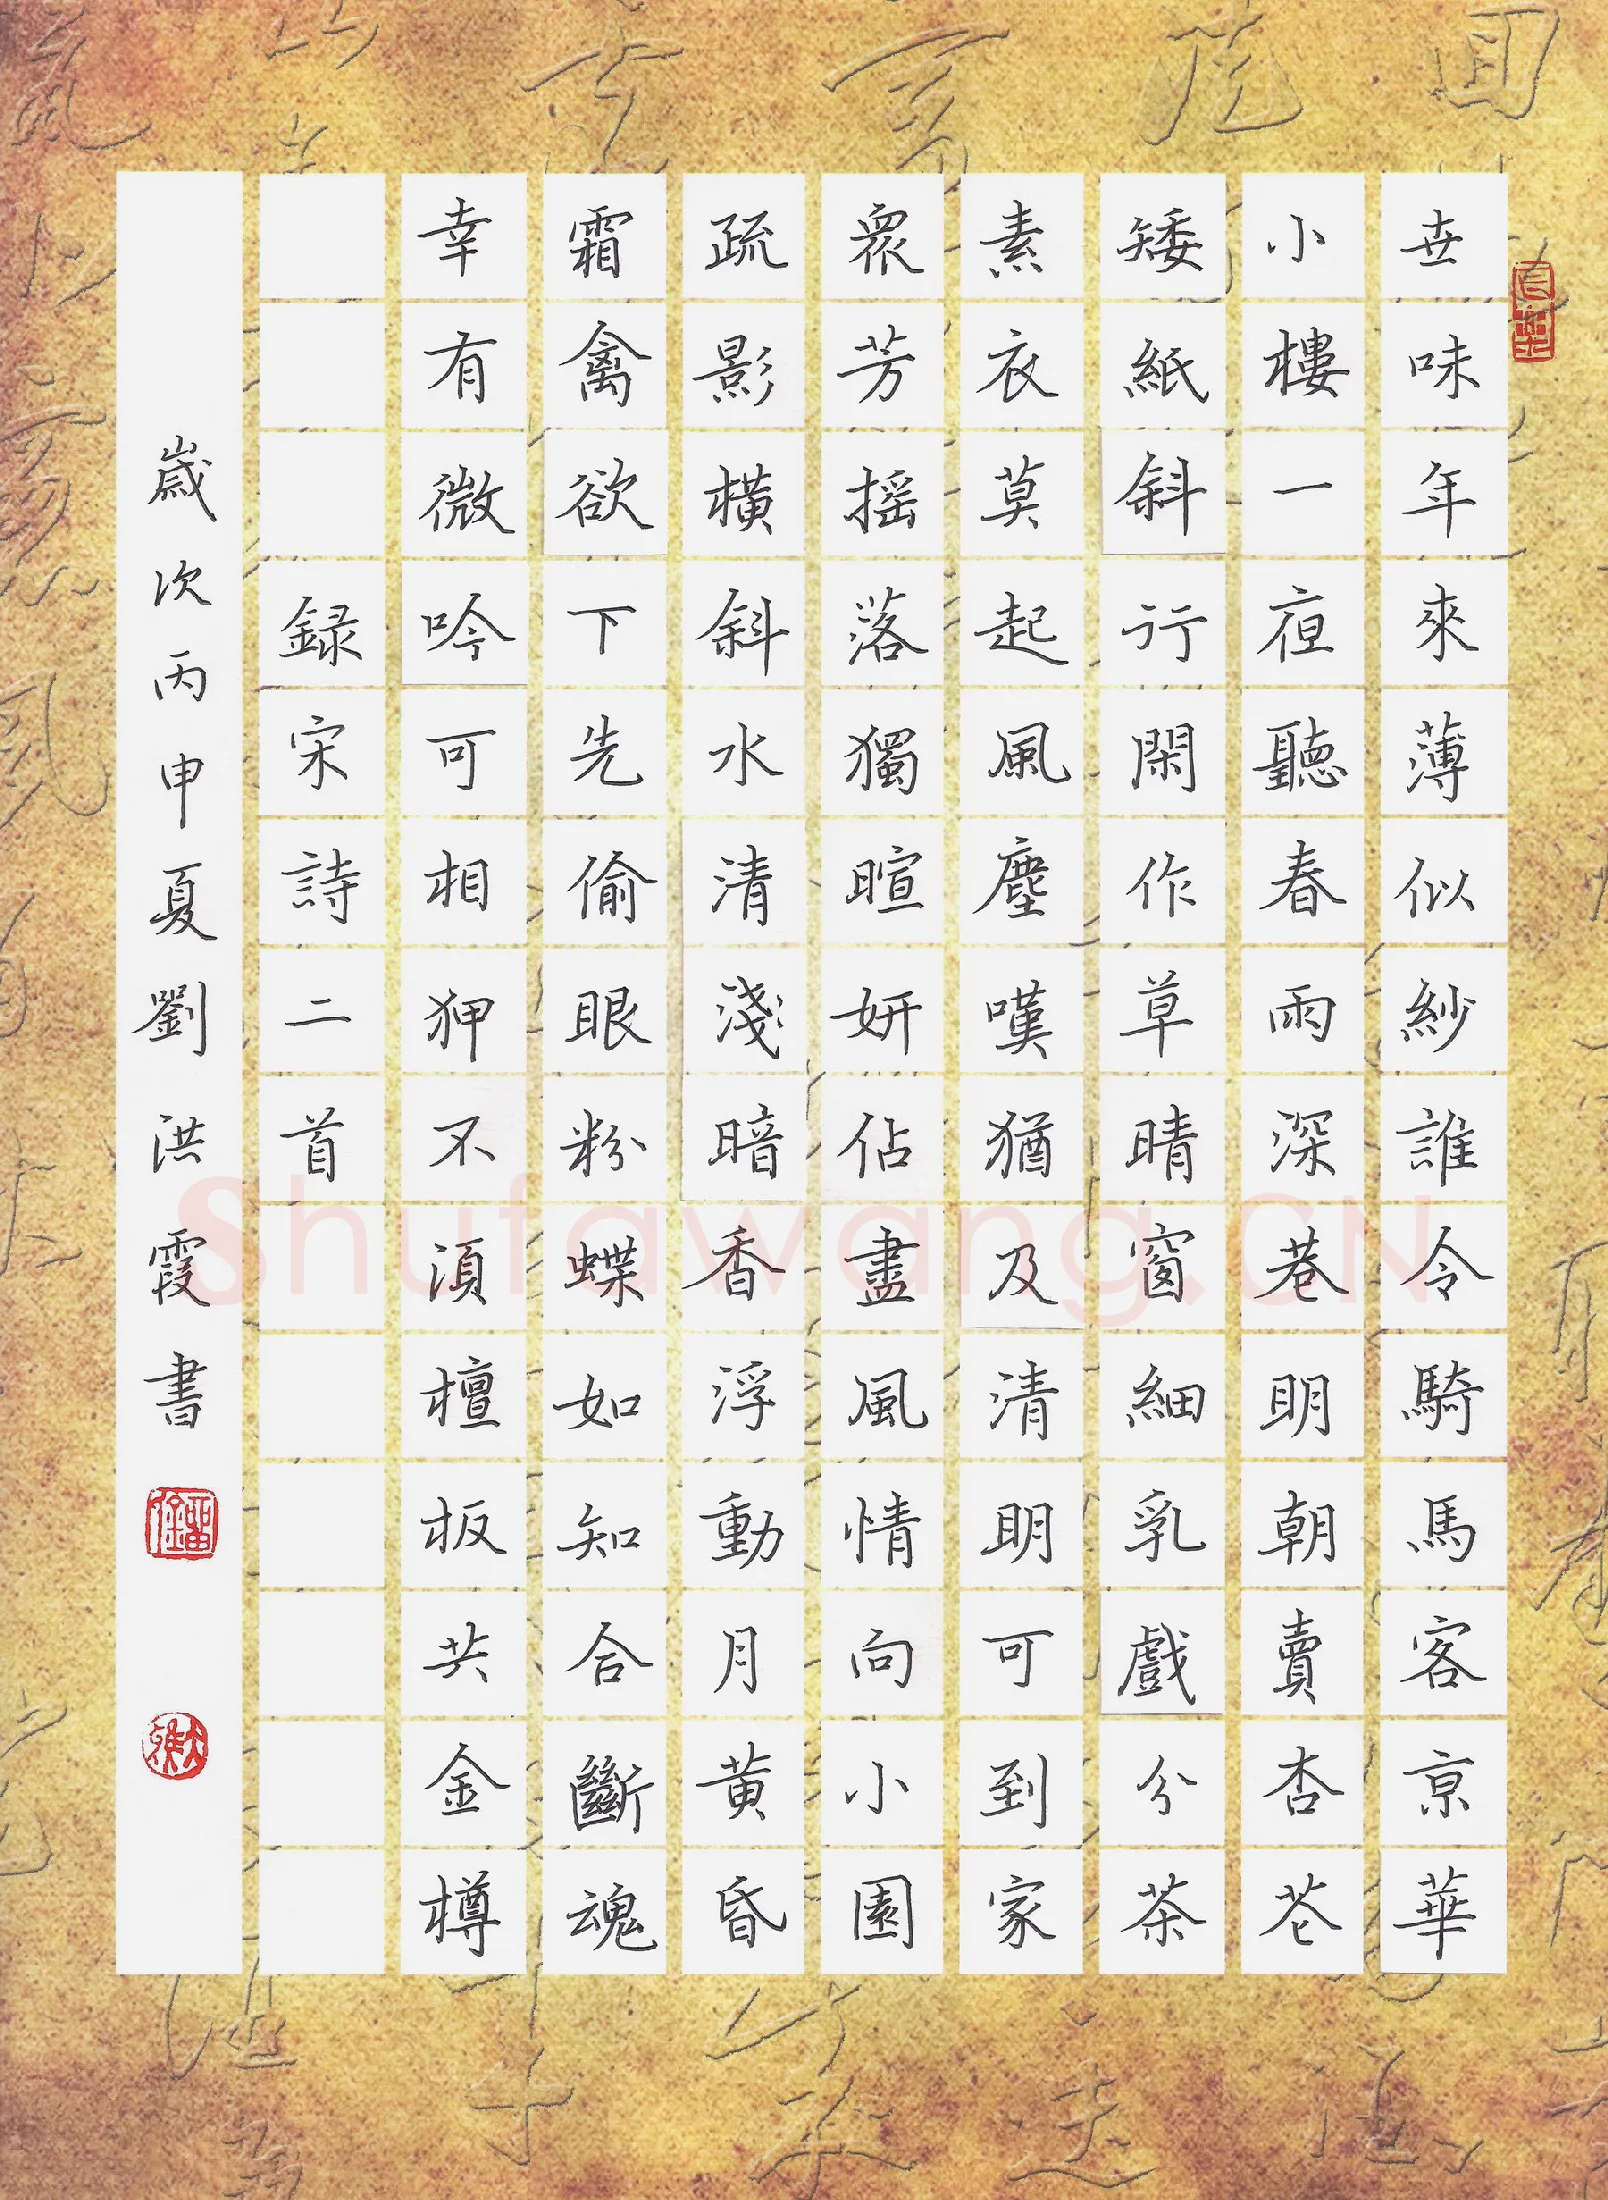 世味年來薄似紗誰令騎馬客京華
小樓一夜聽春雨深巷明朝賣杏花
矮紙斜行閑作草晴窗細乳戲分茶
素衣莫起風塵嘆猶及清明可到家
衆芳摇落獨暄妍佔盡風情向小園
疏影橫斜水清淺暗香浮動月黃昏
霜禽欲下先偷眼粉蝶如知合斷魂
幸有微吟可相狎不須檀板共金樽
録宋詩二首
歲次丙申夏劉洪霞書
Shufawang.CN